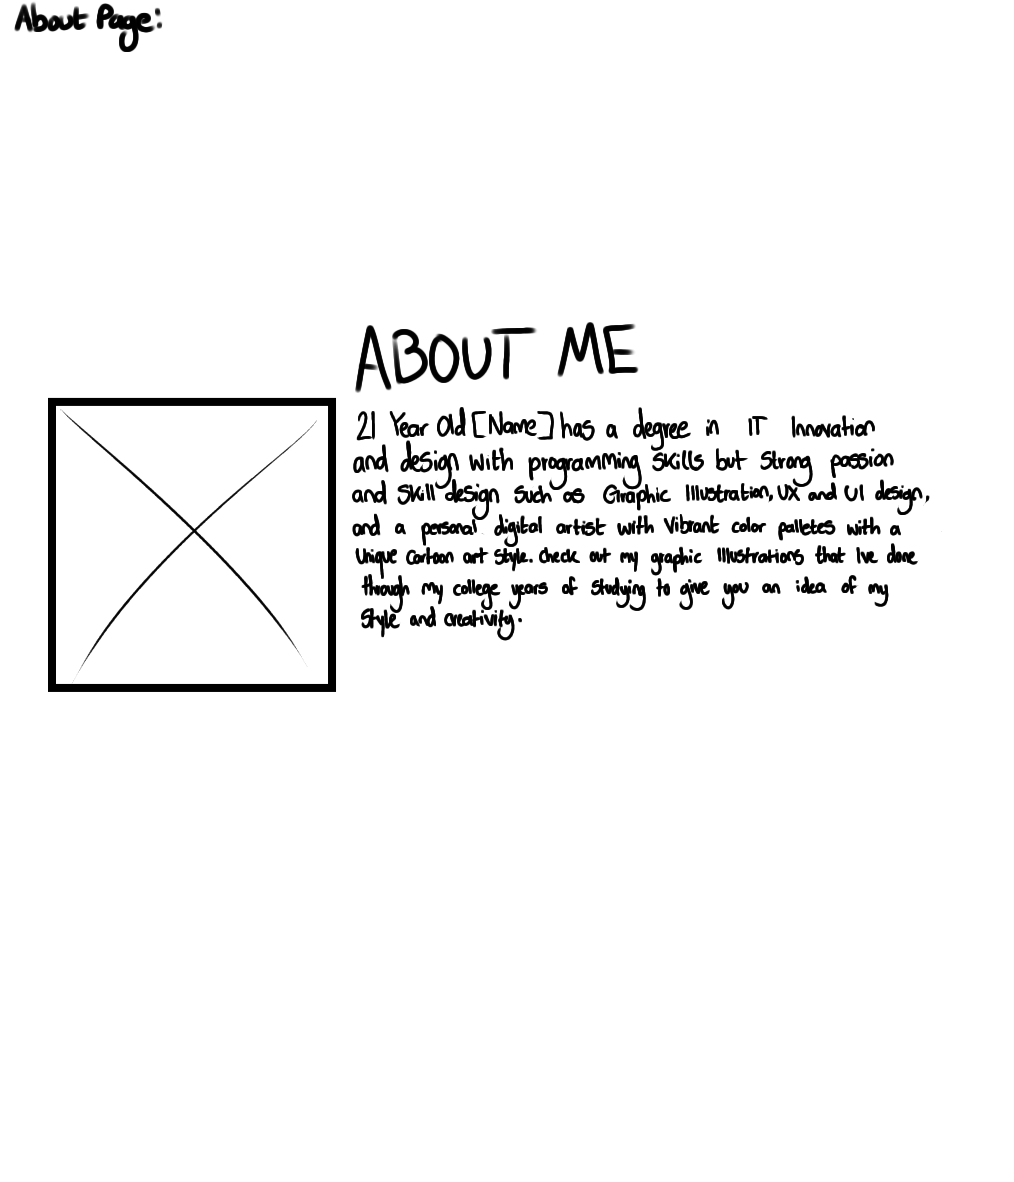 About Page:
ABOUT ME
21 Year Old [Name] has a degree in IT Innovation
and design with programming skills but strong passion
and skill design such as Graphic Illustration, UX and UI design,
and a personal digital artist with vibrant color palletes with a
unique cartoon art style. Check out my graphic Illustrations that I've done
through my college years of studying to give you an idea of my
style and creativity.